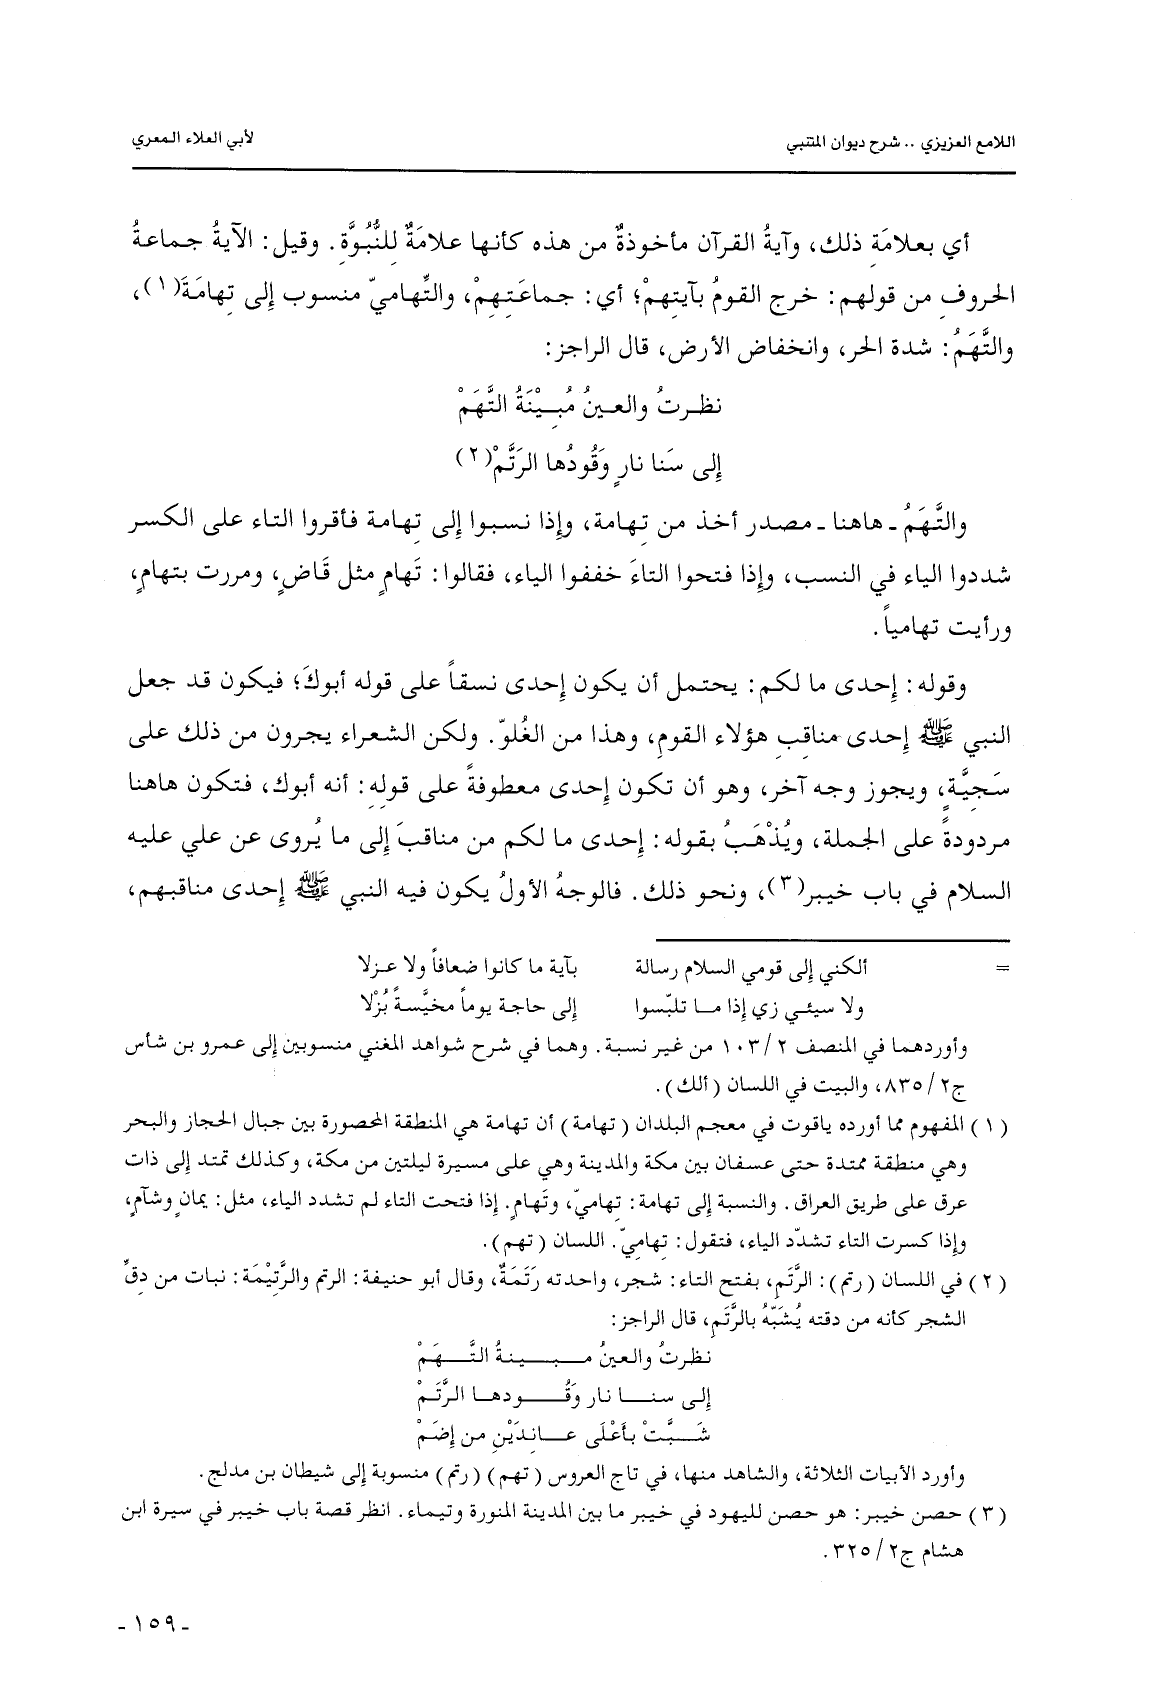 اللامع العزيزي .. شرح ديوان المتنبي لأبي العلاء المعري
أي بعلامَةِ ذلك، وآيةُ القرآن مأخوذةٌ من هذه كأنها علامَةٌ لِلنُّبُوَّةِ. وقيل: الآيةُ جماعةُ
الحروفِ من قولهم: خرج القومُ بآيتِهمْ؛ أي: جماعَتِهِمْ، والتِّهاميّ منسوب إلى تِهامَةَ(١)،
والتَّهَمُ: شدة الحر، وانخفاض الأرض، قال الراجز:
نظرتُ والعينُ مُبِيْنَةُ التَّهَمْ
إلى سَنا نارٍ وَقُودُها الرَتَّمْ(٢)
والتَّهَمُ ـ هاهنا ـ مصدر أخذ من تِهامة، وإذا نسبوا إلى تِهامة فأقروا التاء على الكسر
شددوا الياء في النسب، وإذا فتحوا التاءَ خففوا الياء، فقالوا: تَهامٍ مثل قَاضٍ، ومررت بتهامٍ،
ورأيت تهامياً.
وقوله: إحدى ما لكم: يحتمل أن يكون إحدى نسقاً على قوله أبوكَ؛ فيكون قد جعل
النبي ﷺ إحدى مناقبِ هؤلاء القومِ، وهذا من الغُلوّ. ولكن الشعراء يجرون من ذلك على
سَجِيَّةٍ، ويجوز وجه آخر، وهو أن تكون إحدى معطوفةً على قولِهِ: أنه أبوك، فتكون هاهنا
مردودةً على الجملة، ويُذْهَبُ بقوله: إحدى ما لكم من مناقبَ إلى ما يُروى عن علي عليه
السلام في باب خيبر(٣)، ونحو ذلك. فالوجهُ الأولُ يكون فيه النبي ﷺ إحدى مناقبهم،
= ألكني إلى قومي السلام رسالة بآية ما كانوا ضعافاً ولا عزلا
ولا سيئي زي إذا ما تلبّسوا إلى حاجة يوماً مخيَّسةً بُزْلا
وأوردهما في المنصف ١٠٣/٢ من غير نسبة. وهما في شرح شواهد المغني منسوبين إلى عمرو بن شأس
ج٨٣٥/٢، والبيت في اللسان (ألك).
(١) المفهوم مما أورده ياقوت في معجم البلدان (تهامة) أن تهامة هي المنطقة المحصورة بين جبال الحجاز والبحر
وهي منطقة ممتدة حتى عسفان بين مكة والمدينة وهي على مسيرة ليلتين من مكة، وكذلك تمتد إلى ذات
عرق على طريق العراق. والنسبة إلى تهامة: تِهاميّ، وتَهامٍ. إذا فتحت التاء لم تشدد الياء، مثل: يمانٍ وشآمٍ،
وإذا كسرت التاء تشدّد الياء، فتقول: تِهاميّ. اللسان (تهم).
(٢) في اللسان (رتم): الرَّتَمِ، بفتح التاء: شجر، واحدته رَتَمَةٌ، وقال أبو حنيفة: الرتم والرَّتِيْمَة: نبات من دقِّ
الشجر كأنه من دقته يُشَبّهُ بالرَّتَمِ، قال الراجز:
نظرتُ والعينُ مبينةُ التَّهَمْ
إلى سنا نار وَقُودها الرَّتَمْ
شَبَّتْ بأَعْلَى عانِدَيْنِ من إضَمْ
وأورد الأبيات الثلاثة، والشاهد منها، في تاج العروس (تهم) (رتم) منسوبة إلى شيطان بن مدلج.
(٣) حصن خيبر: هو حصن لليهود في خيبر ما بين المدينة المنورة وتيماء. انظر قصة باب خيبر في سيرة ابن
هشام ج٣٢٥/٢.
- ١٥٩ -